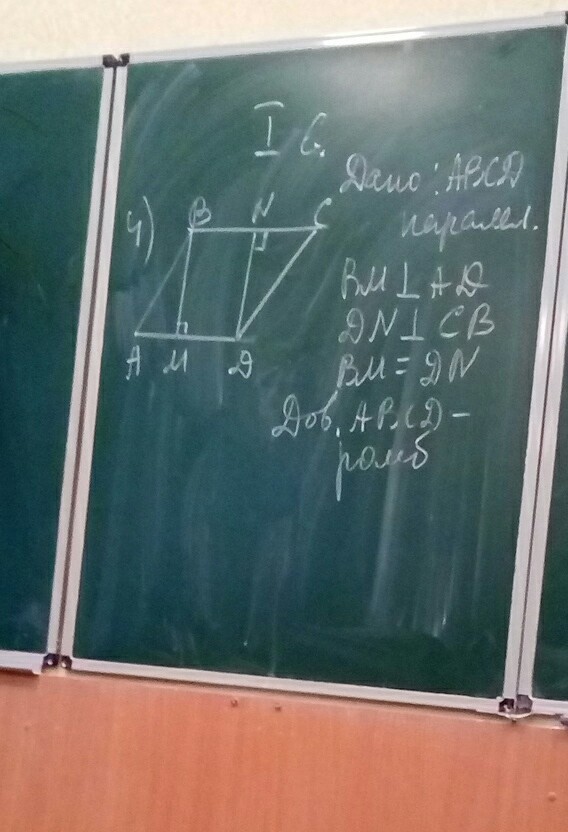 I С.
4)
B N C
A M D
Дано: ABCD
паралел.
BM ⊥ AD
DN ⊥ CB
BM = DN
Дов. ABCD –
ромб